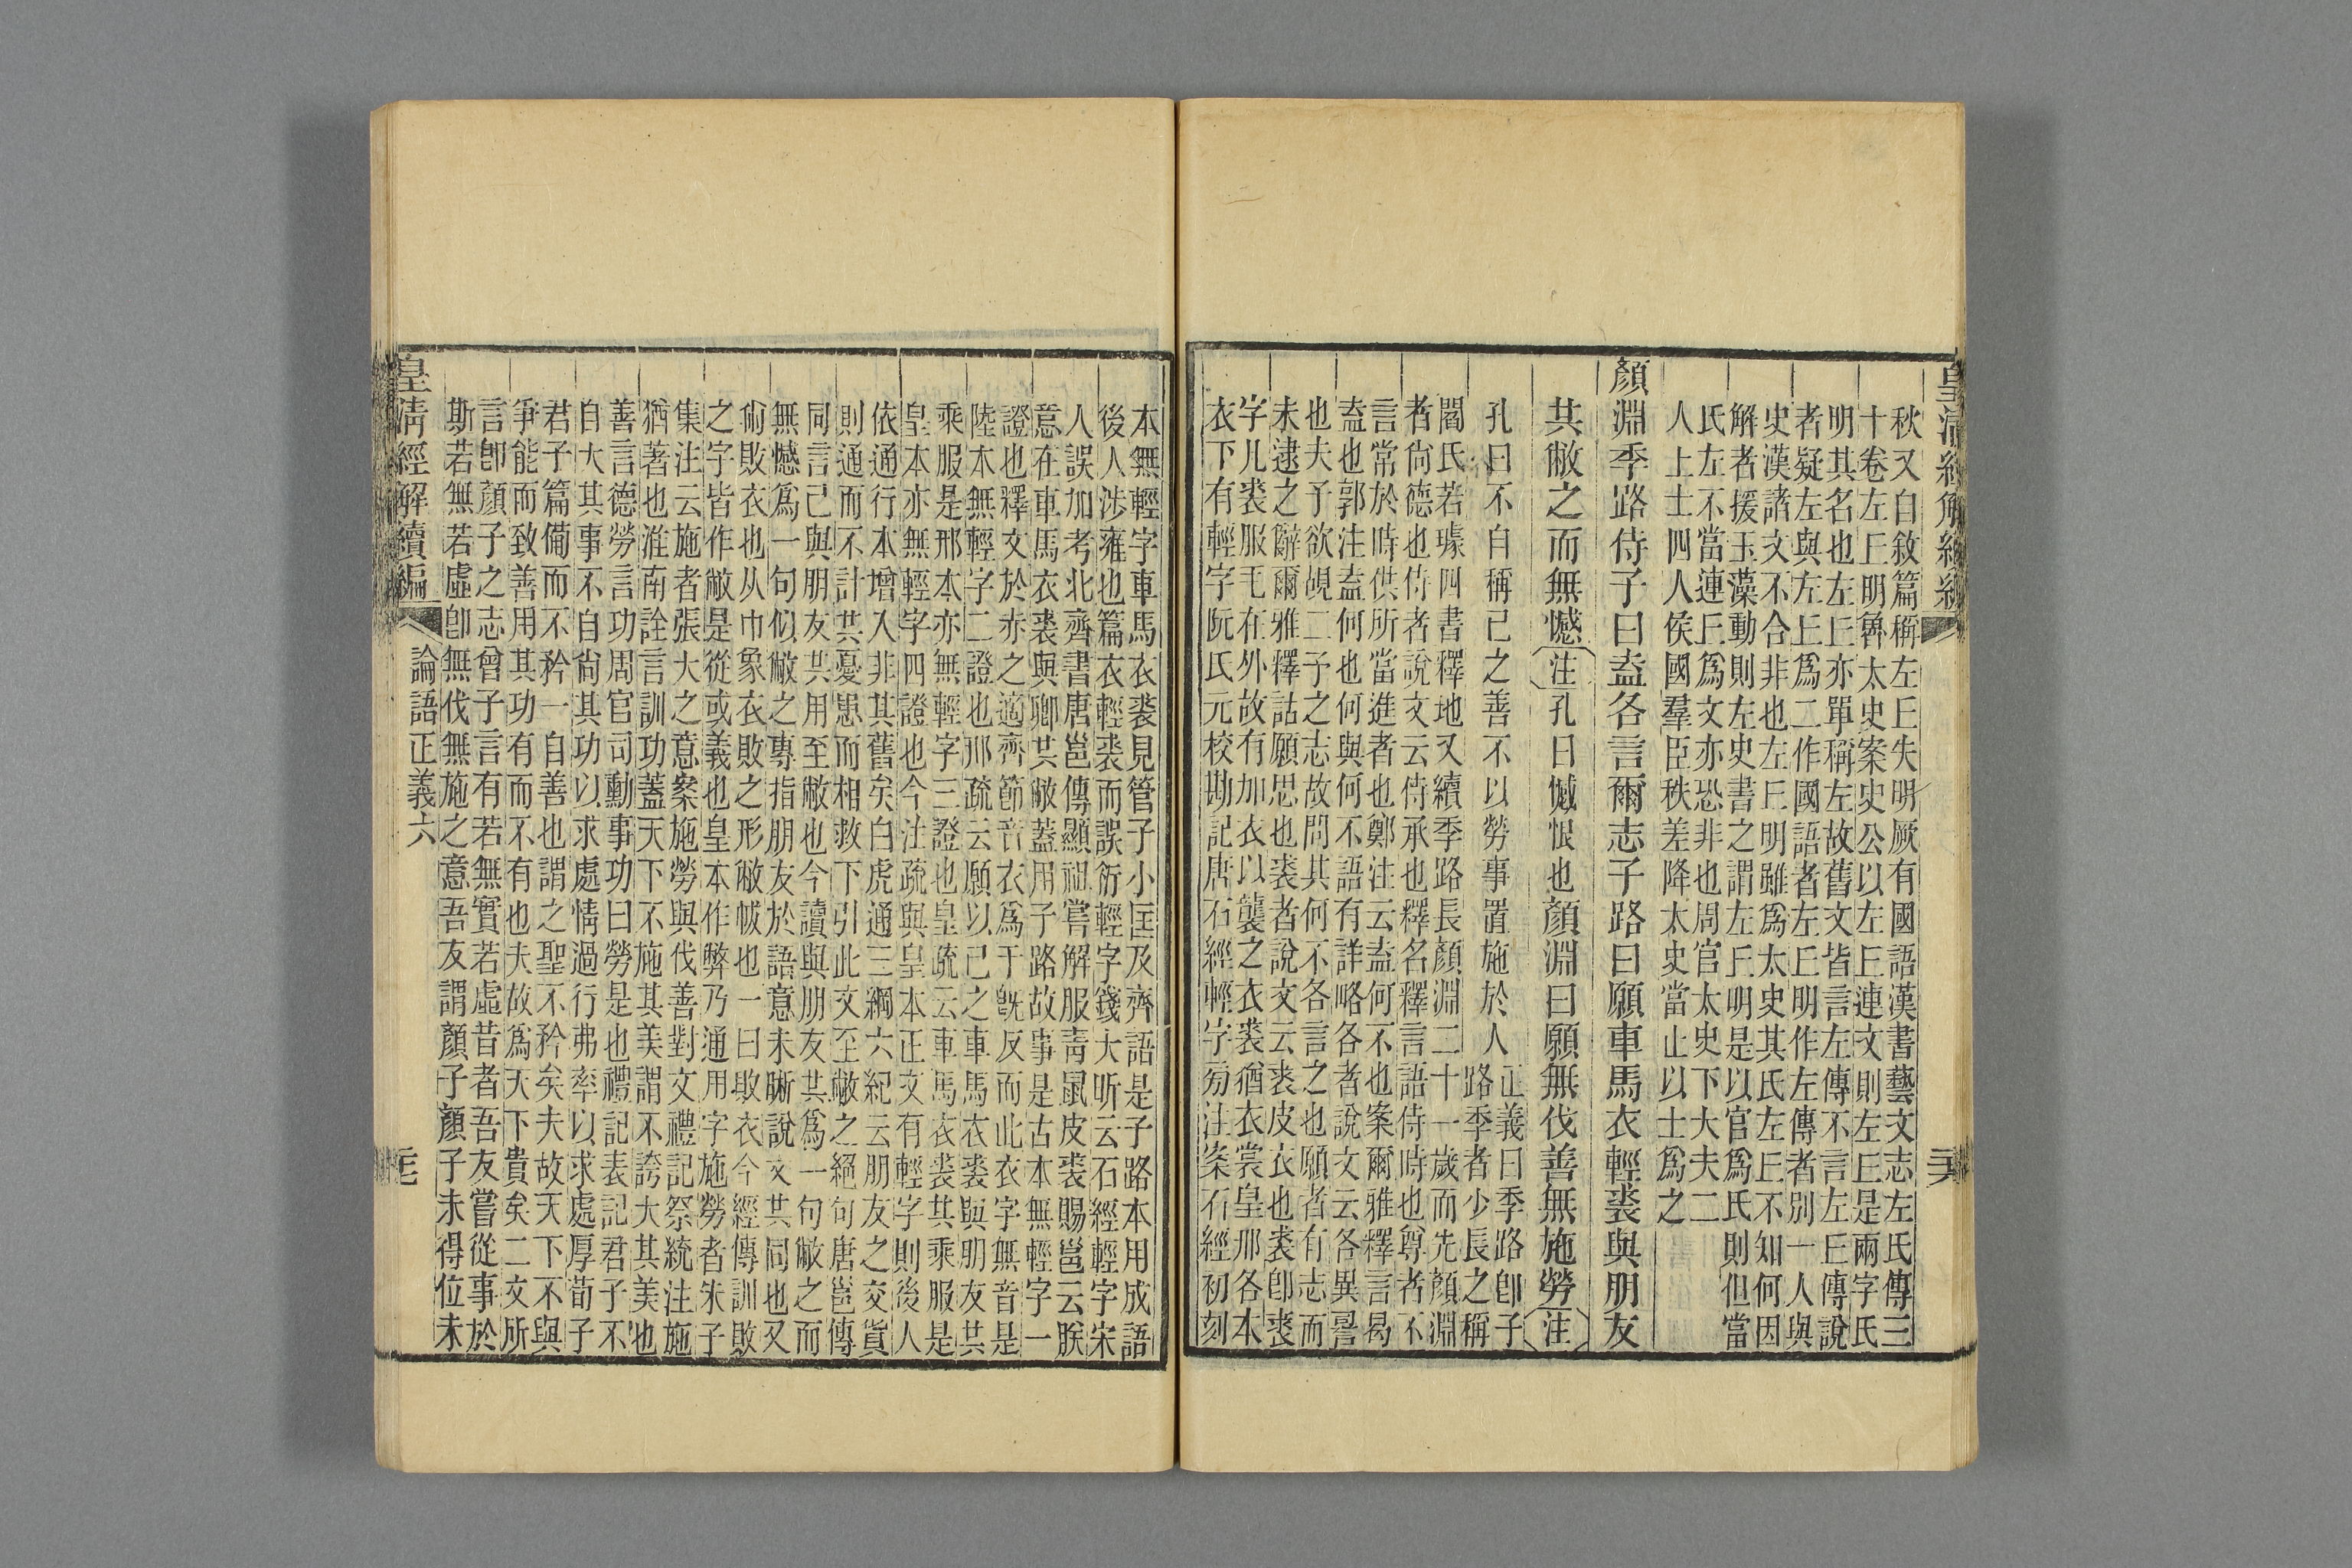 皇清經解續編
秋又自敘篇稱左丘失明厥有國語漢書藝文志左氏傳三
十卷左丘明魯太史案史公以左丘連文則左丘是兩字氏
明其名也左丘亦單稱左故舊文皆言左傳不言左丘傳說
者疑左與左丘爲二作國語者左丘明作左傳者別一人與
史漢諸文不合非也左丘明雖爲太史其氏左丘不知何因
解者援玉藻動則左史書之謂左丘明是以官爲氏則但當
氏左不當連丘爲文亦恐非也周官太史下大夫二
人上士四人侯國羣臣秩差降太史當止以士爲之
顏淵季路侍子曰盍各言爾志子路曰願車馬衣輕裘與朋友
共敝之而無憾注孔曰憾恨也顏淵曰願無伐善無施勞注
孔曰不自稱己之善不以勞事置施於人正義曰季路卽子
路季者少長之稱
閻氏若璩四書釋地又續季路長顏淵二十一歲而先顏淵
者尙德也侍者說文云侍承也釋名釋言語侍時也尊者不
言常於時供所當進者也鄭注云盍何不也案爾雅釋言曷
盍也郭注盍何也何與何不語有詳略各者說文云各異詞
也夫子欲覘二子之志故問其何不各言之也願者有志而
未逮之辭爾雅釋詁願思也裘者說文云裘皮衣也裘卽裘
字凡裘服毛在外故有加衣以襲之衣裘猶衣裳皇邢各本
衣下有輕字阮氏元校勘記唐石經輕字旁注案石經初刻
本無輕字車馬衣裘見管子小匡及齊語是子路本用成語
後人涉雍也篇衣輕裘而誤衍輕字錢大昕云石經輕字宋
人誤加考北齊書唐邕傳顯祖嘗解服靑鼠皮裘賜邕云朕
意在車馬衣裘與卿共敝蓋用子路故事是古本無輕字一
證也釋文於赤之適齊節音衣爲于旣反而此衣字無音是
陸本無輕字二證也邢疏云願以己之車馬衣裘與朋友共
乘服是邢本亦無輕字三證也皇疏云車馬衣裘共乘服是
皇本亦無輕字四證也今注疏與皇本正文有輕字則後人
依通行本增入非其舊矣白虎通三綱六紀云朋友之交貨
則通而不計共憂患而相救下引此文至敝之絕句唐邕傳
同言己與朋友共用至敝也今讀與朋友共爲一句敝之而
無憾爲一句似敝之專指朋友於語意未晰說文共同也又
㡀敗衣也从巾象衣敗之形敝帗也一曰敗衣今經傳訓敗
之字皆作敝是從或義也皇本作弊乃通用字施勞者朱子
集注云施者張大之意案施勞與伐善對文禮記祭統注施
猶著也淮南詮言訓功蓋天下不施其美謂不誇大其美也
善言德勞言功周官司勳事功曰勞是也禮記表記君子不
自大其事不自尙其功以求處情過行弗率以求處厚荀子
君子篇備而不矜一自善也謂之聖不矜矣夫故天下不與
爭能而致善用其功有而不有也夫故爲天下貴矣二文所
言卽顏子之志曾子言有若無實若虛昔者吾友嘗從事於
斯若無若虛卽無伐無施之意吾友謂顏子顏子未得位未
皇清經解續編
論語正義六